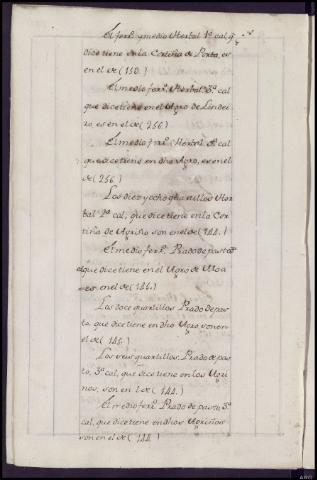 El ferr.º y medio Hortal 1ª cal, q.ᵉ
dice tiene en la Cortiña de Porto, es
en el de (150.)
El medio ferr.º Hortal 3ª cal
que dice tiene en el Agro de Lindei
ro, es en el de (256)
El medio ferr.º Hortal 3ª cal
que dice tiene en dho Agro, es en el
de (256)
Los diez y ocho quartillos Hor
tal 2ª cal, que dice tiene en la Cor
tiña de Agriño son en el de (144.)
El medio ferr.º Prado de pasto
que dice tiene en el Agro de
es en el de (146.)
Los doce quartillos Prado de pas
to, que dice tiene en dho Agro son en
el de (146.)
Los seis quartillos Prado de pas
to, 3ª cal, que dice tiene en los Agri
ños, son en l de (144.)
El medio ferr.º Prado de pasto 3ª
cal, que dice tiene en dhos Agriños
son en el de (144.)